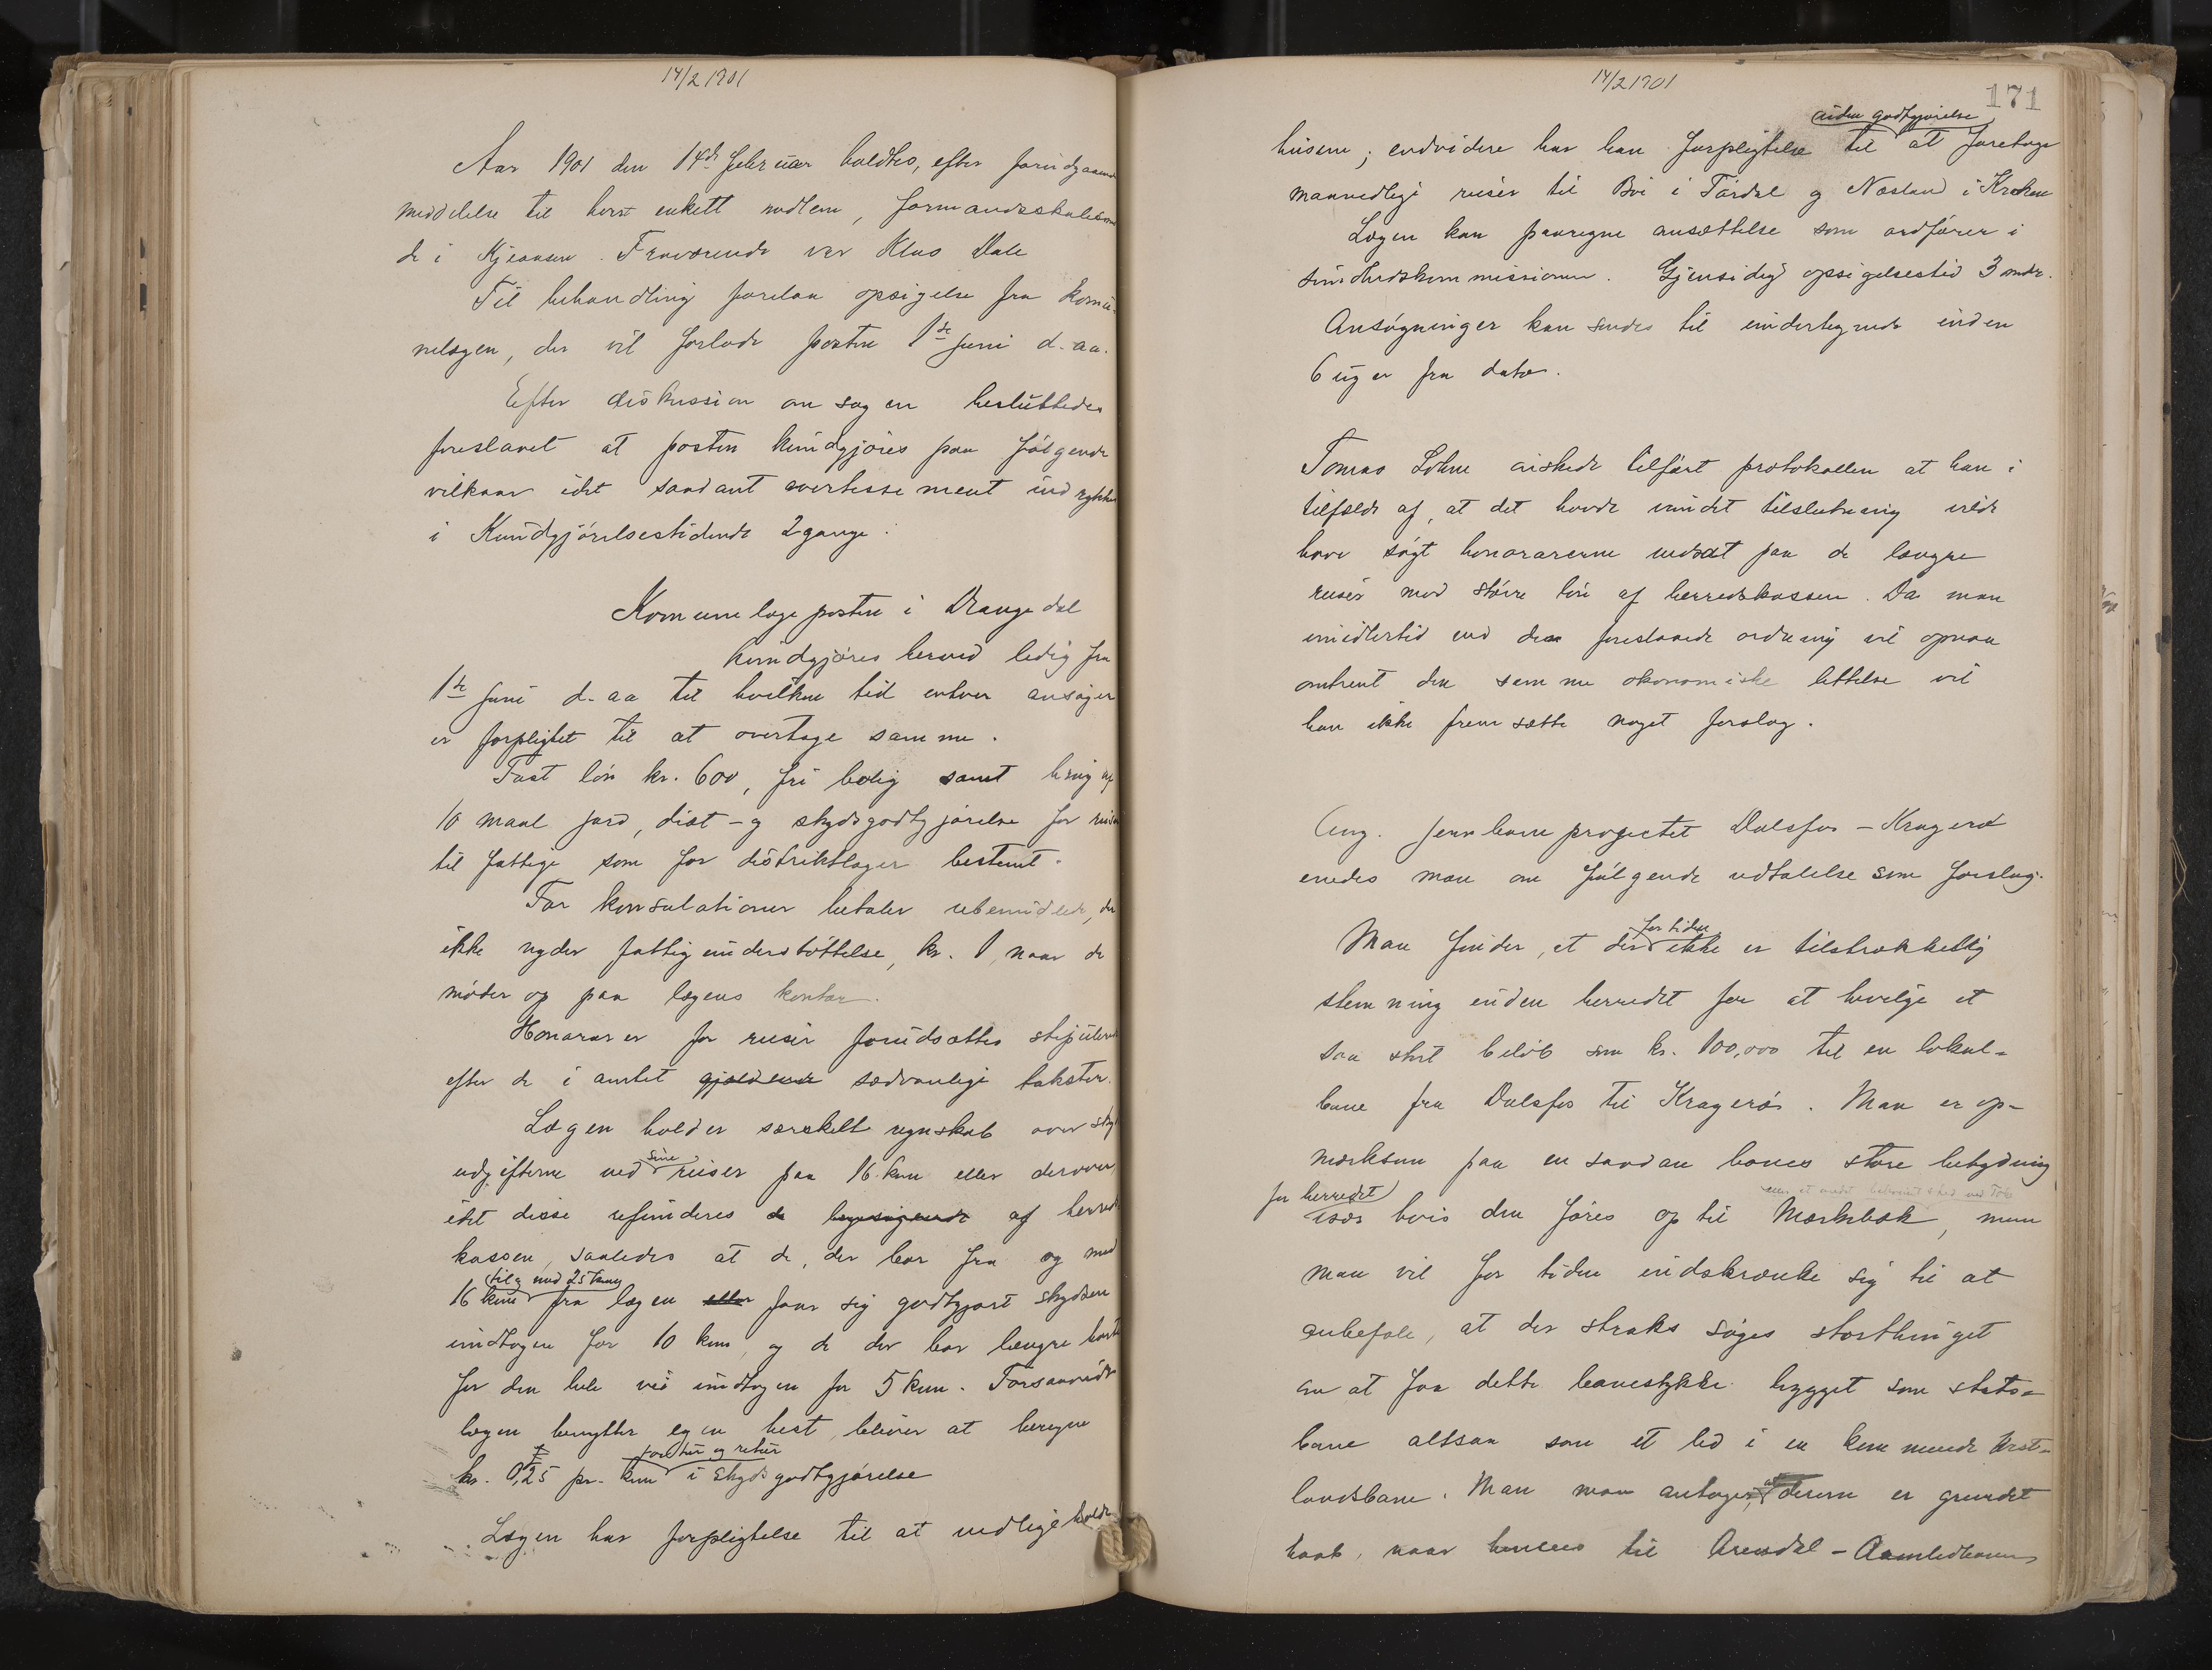 14/2 1901
Aar 1901 den 14de februar holdtes, efter forudgaaende
meddelelse til hvert enkelt medlem, formandsskabsmø-
de i Kjeaasen. Fraværende var Klas Dale
Til behandling forelaa opsigelse fra komu-
nelægen, der vil forlade posten 1ste juni d. aa.
Efter diskussion om sagen besluttedes
foreslaaet at posten kundgjøres paa følgende
vilkaar idet saadant avertissement indrykkes
i Kundgjørelsestidende 2 gange:
Komunelægeposten i Drangedal
kundgjøres herved ledig fra
1ste juni d. aa til hvilken tid enhver ansøger
er forpligtet til at overtage samme.
Fast løn kr. 600, fri bolig samt brug af
10 maal jord, diæt- og skydsgodtgjørelse for reiser
til fattige som for distriktslæger bestemt.
For konsulationer betaler ubemidlede, der
ikke nyder fattigunderstøttelse, kr. 1, naar de
møder op paa lægens kontor.
Honorarer for reiser forudsættes stipuleret
efter de i amtet gjældende sædvanlige takster.
Lægen holder særskilt regnskab over skyds
udgifterne ved sine reiser paa 16 km eller derover,
idet disse refunderes de af herreds
kassen, saaledes at de, der bor fra og med
til og med 25 km
16 km fra lægen eller faar sig godtgjort skydsen
undtagen for 10 km, og de der bor længre borte
for den hele vei undtagen for 5 km. Forsaavidt
lægen benytter egen hest, bliver at beregne
for tur og retur
kr. 0,25 pr. km i skydsgodtgjørelse
Lægen har forpligtelse til at vedligeholde
14/2 1901
171
uden godtgjørelse
husene; endvidere har han forpligtelse til at foretage
maanedlige reiser til Bø i Tørdal og Næsland i Kroken
Lægen kan paaregne ansættelse som ordfører i
sundhedskommissionen. Gjensidig opsigelsestid 3 mdr.
Ansøgninger kan sendes til undertegnede inden
6 uger fra dato.
Tomas Lohne ønskede tilført protokollen at han i
tilfælde af, at det havde vundet tilslutning vilde
have søgt honorarerne nedsat paa de længre
reiser mod større løn af herredskassen. Da man
imidlertid ved den foreslaaede ordning vil opnaa
omtrent den samme økonomiske lettelse vil
han ikke fremsætte noget forslag.
Ang. jernbaneprojectet Dalsfos - Kragerø
enedes man om følgende udtalelse som forslag:
for tiden
Man finder, at der ikke er tilstrækkelig
stemning inden herredet for at bevilge et
saa stort beløb som kr. 100,000 til en lokal-
bane fra Dalsfos til Kragerø. Man er op-
mærksom paa en saadan banes store betydning
for herredet
især hvis den føres op til Mærkebæk, men
man vil for tiden indskrænke sig til at
anbefale, at der straks søges storthinget
om at faa dette banestykke bygget som stats-
bane altsaa som et led i en kommende Vest-
landsbane. Man man antager, at derom er grundet
haab, naar hensees til Arendal - Aamlidbanen